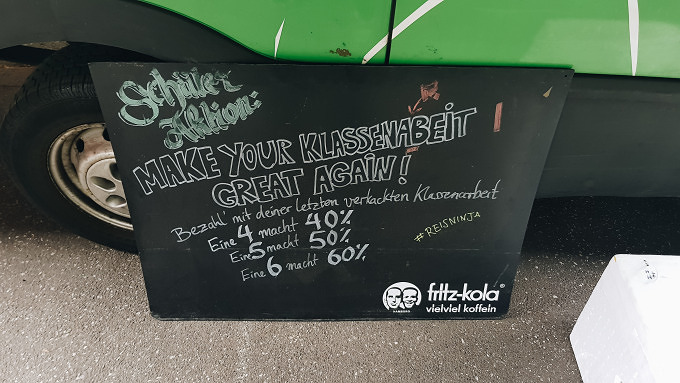 Schüler
Aktion:
MAKE YOUR KLASSENABEIT
GREAT AGAIN!
Bezahl' mit deiner letzten verkackten Klassenarbeit
Eine 4 macht 40%
Eine 5 macht 50%
Eine 6 macht 60%
#REISNINJA
fritz-kola®
vielviel koffein
HAMBURG